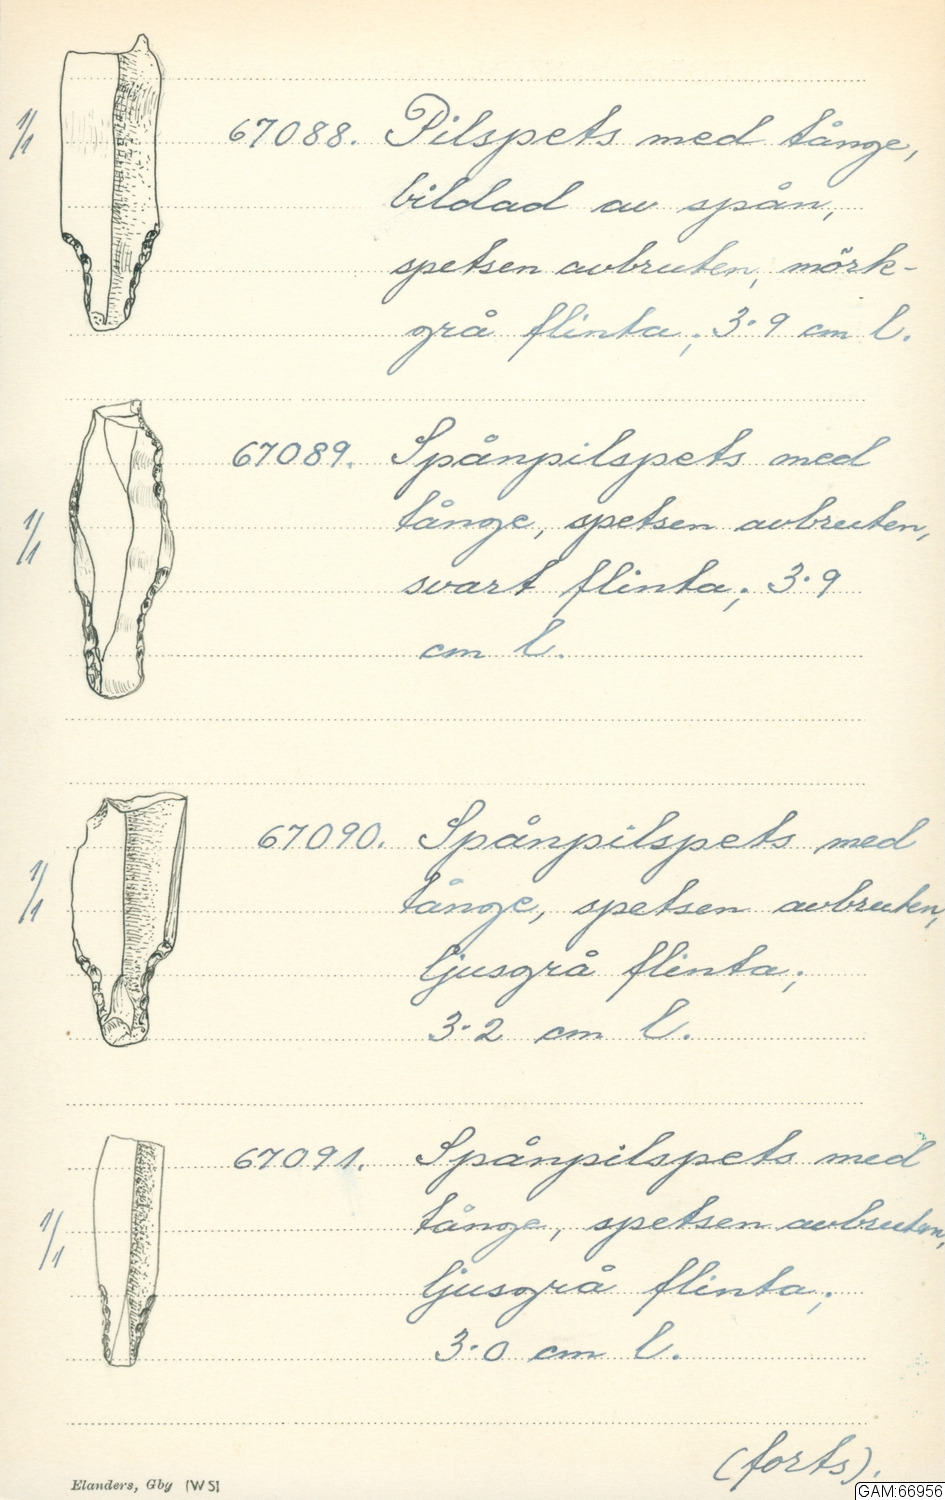 1/1
67088. Pilspets med tånge,
bildad av spån,
spetsen avbruten, mörk-
grå flinta; 3·9 cm l.
67089. Spånpilspets med
1/1
tånge, spetsen avbruten,
svart flinta; 3·9
cm l.
67090. Spånpilspets med
1/1
tånge, spetsen avbruten,
ljusgrå flinta;
3·2 cm l.
67091. Spånpilspets med
1/1
tånge, spetsen avbruten,
ljusgrå flinta;
3·0 cm l.
(forts).
Elanders, Gby [W S]
GAM:66956